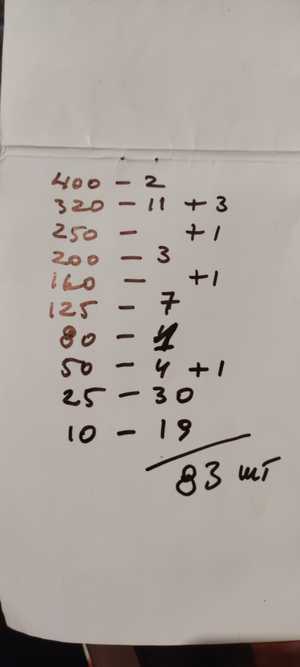 400 - 2
320 - 11 + 3
250 - +1
200 - 3
160 - +1
125 - 7
80 - 1
50 - 4 + 1
25 - 30
10 - 19
83 шт